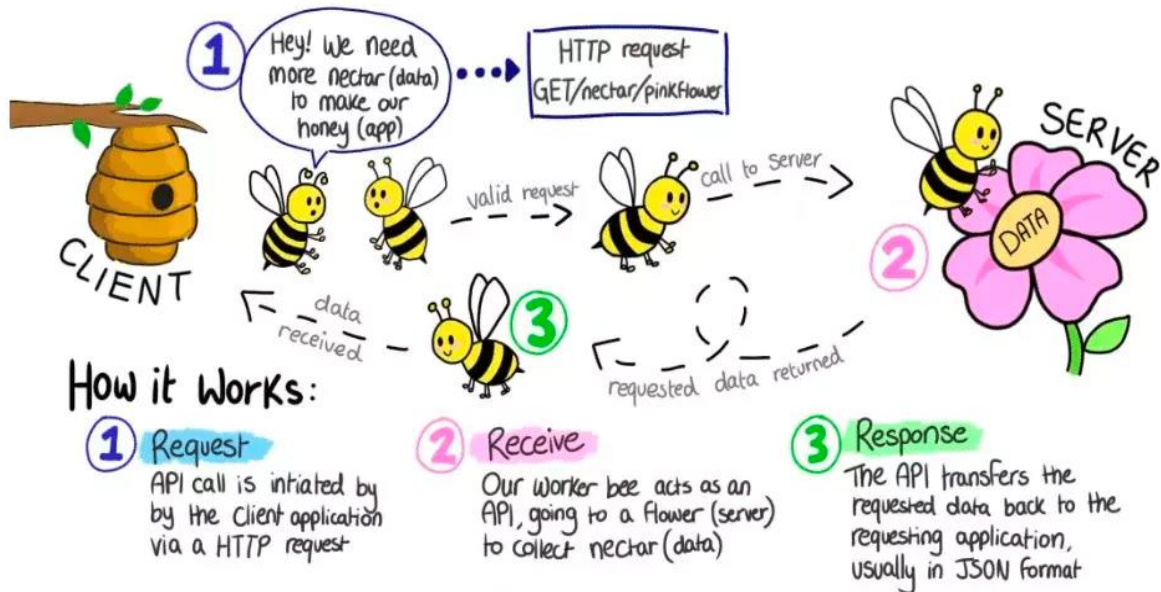 1
Hey! We need
more nectar (data)
to make our
honey (app)
HTTP request
GET/nectar/pinkflower
CLIENT
valid request
call to server
SERVER
DATA
2
data
received
3
requested data returned
How it works:
1 Request
API call is intiated by
by the client application
via a HTTP request
2 Receive
Our worker bee acts as an
API, going to a flower (server)
to collect nectar (data)
3 Response
The API transfers the
requested data back to the
requesting application,
usually in JSON format